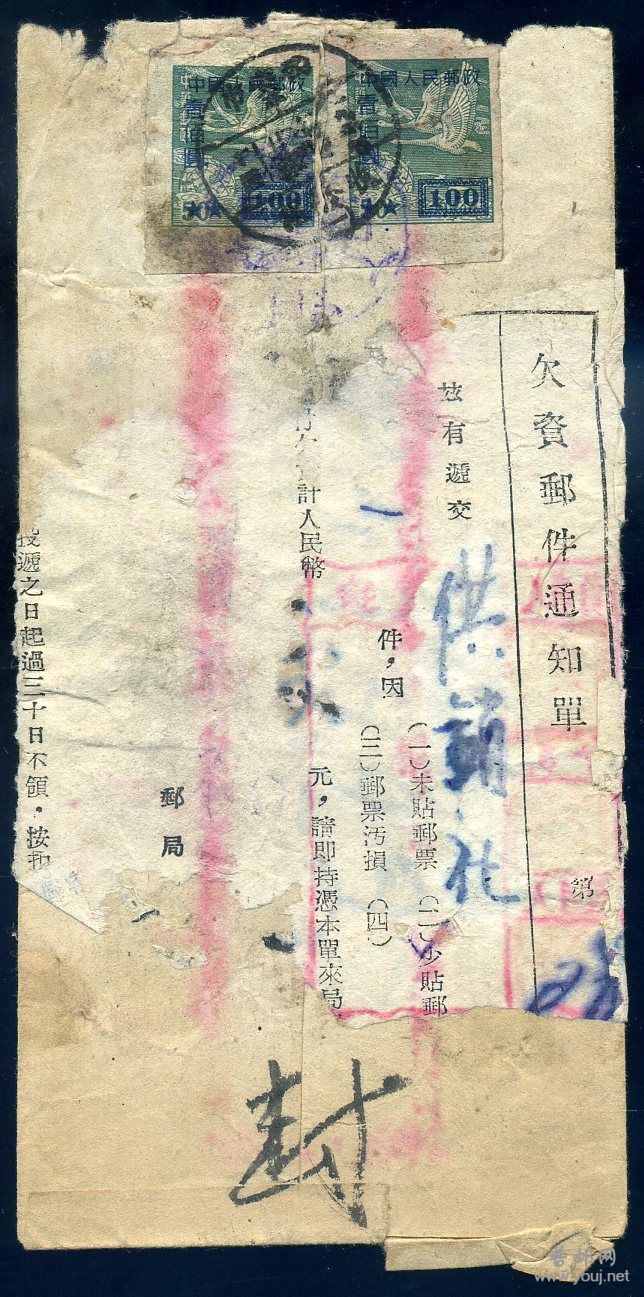 中國人民郵政
壹佰圓
100
中國人民郵政
壹佰圓
100
欠資郵件通知單
第
茲有遞交
供銷社
件，因
(一)未貼郵票 (二)少貼郵
(三)郵票汚損 (四)
計人民幣
元，請即持憑本單來局
郵局
投遞之日起過三十日不領，按
封
普邮网
www.youj.net